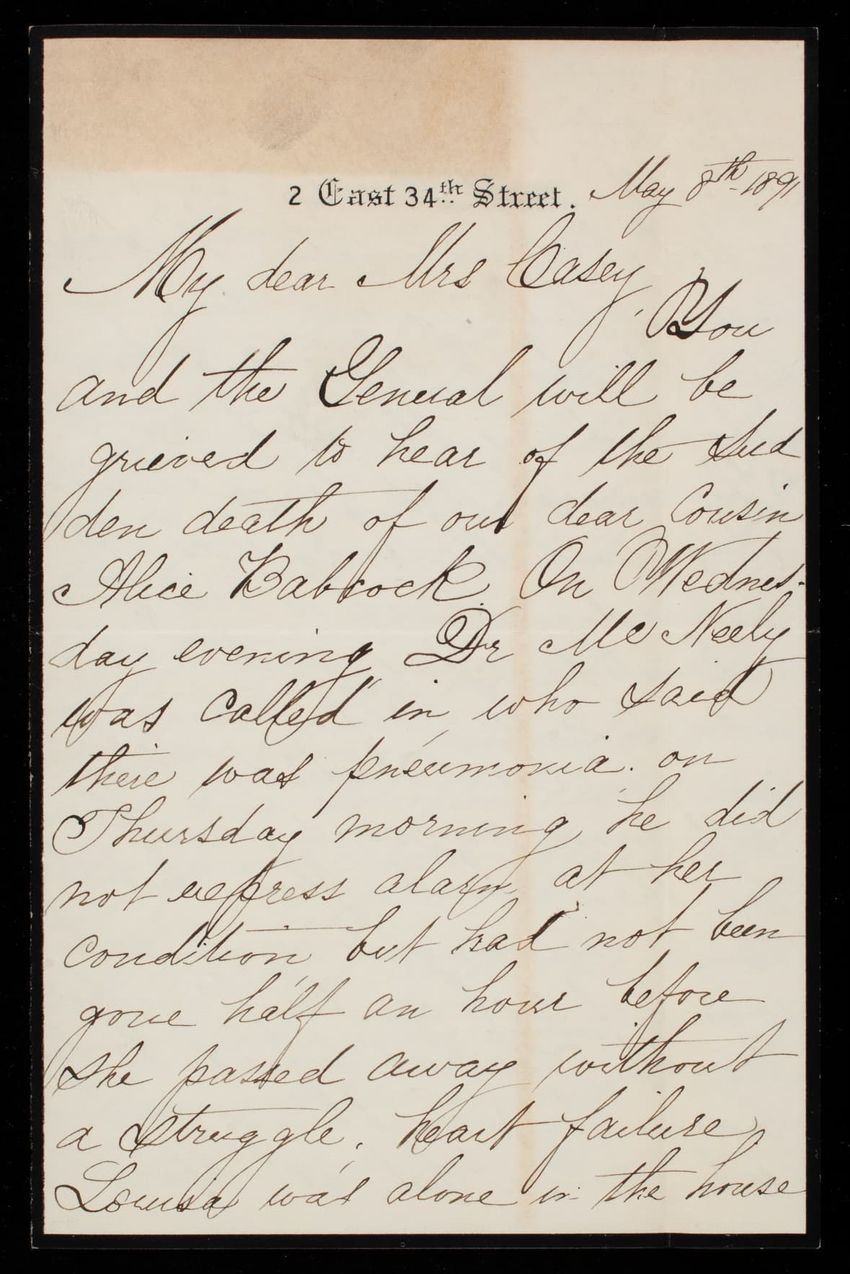 2 East 34th Street. May 8th 1891
My dear Mrs Casey,
You
and the General will be
grieved to hear of the sud
den death of our dear Cousin
Alice Babcock. On Wednes-
day evening Dr McNeely
was called in, who said
there was pneumonia. on
Thursday morning, he did
not express alarm at her
condition, but had not been
gone half an hour before
she passed away without
a struggle. heart failure
Louisa was alone in the house